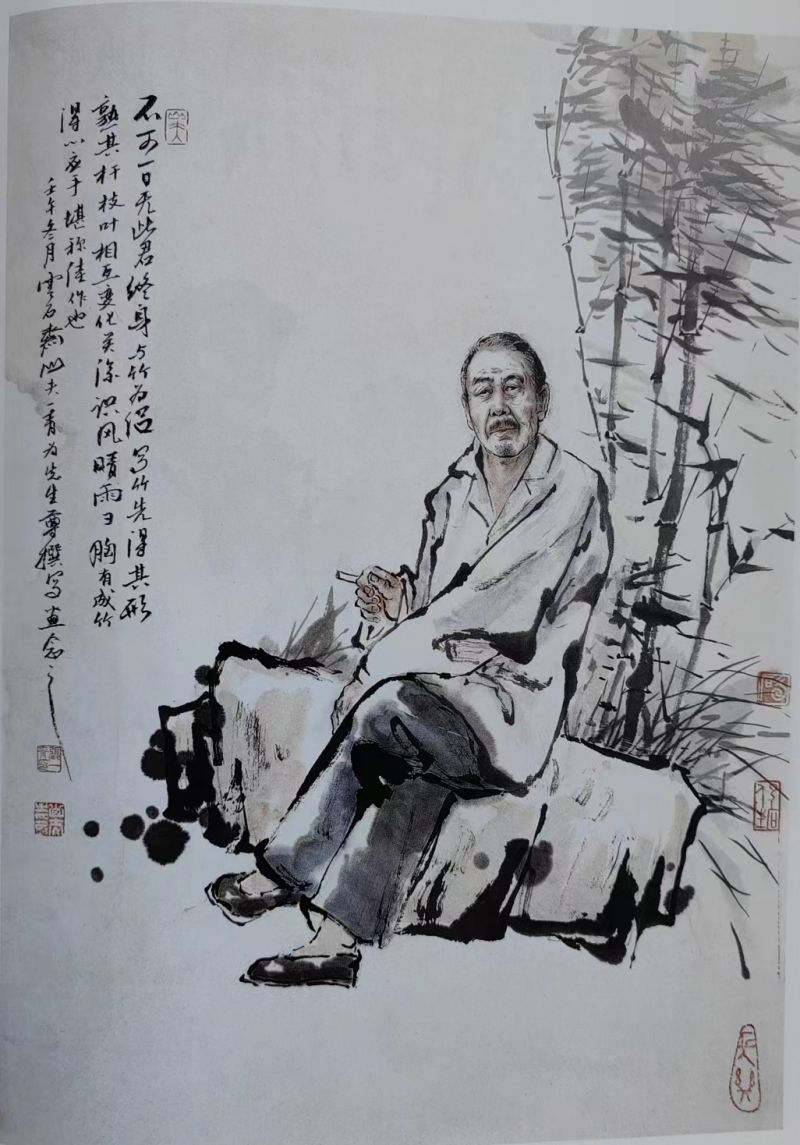 不可一日无此君终身与竹为侣写竹先得其形
熟其杆枝叶相互变化关深识风晴雨日胸有成竹
得心应手堪称佳作也
壬午冬月云石斋山夫一青为先生尊撰写画念之